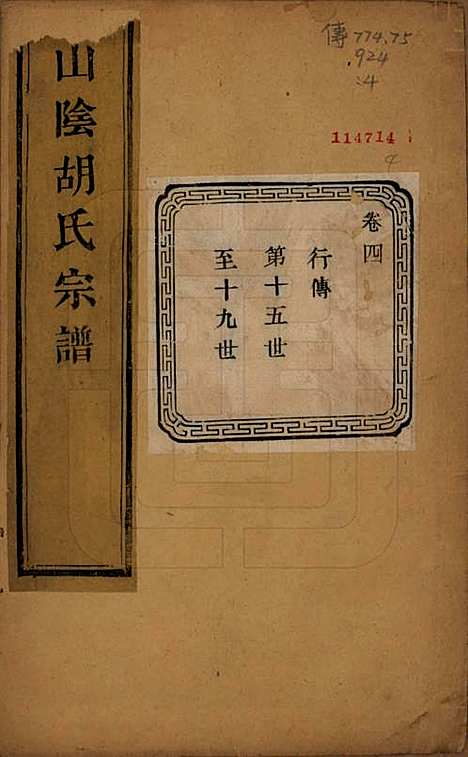 傳 774.75
.924
:4
114714
4
卷四
行傳
第十五世
至十九世
山陰胡氏宗譜